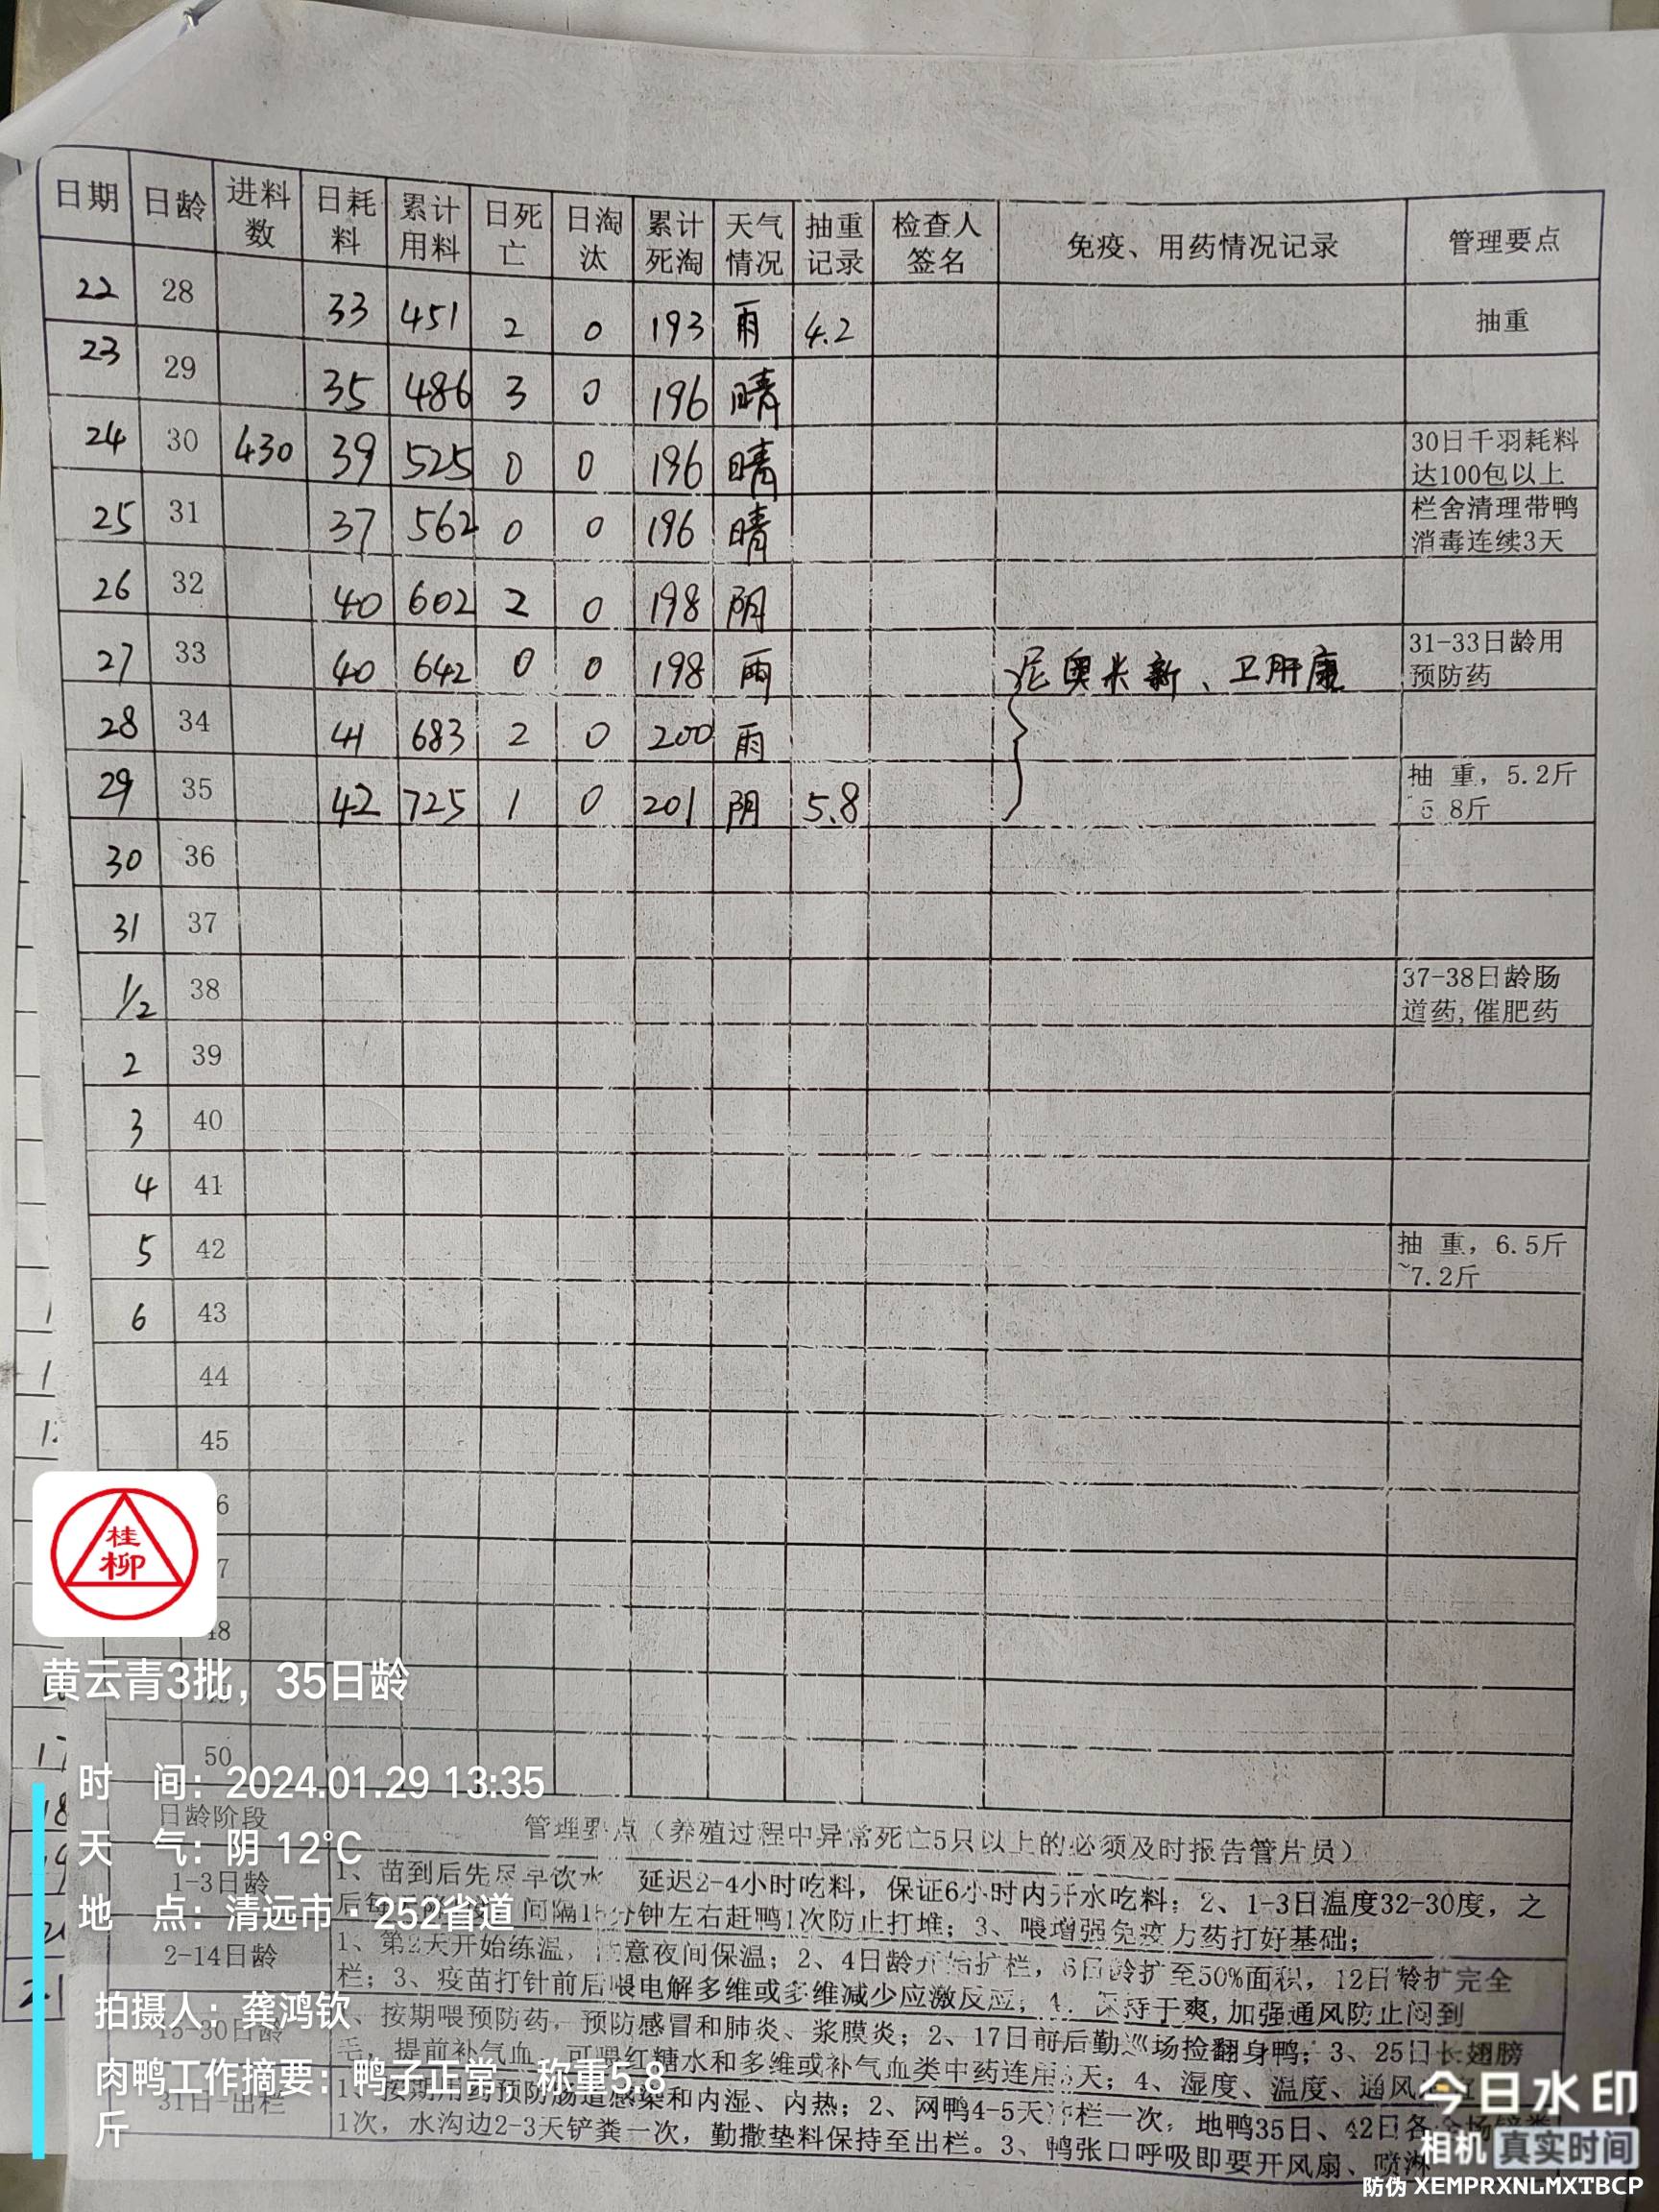 日期 日龄 进料数 日耗料 累计用料 日死亡 日淘汰 累计死淘 天气情况 抽重记录 检查人签名 免疫、用药情况记录 管理要点
22 28 33 451 2 0 193 雨 4.2 抽重
23 29 35 486 3 0 196 晴
24 30 430 39 525 0 0 196 晴 30日千羽耗料达100包以上
25 31 37 562 0 0 196 晴 栏舍清理带鸭消毒连续3天
26 32 40 602 2 0 198 阴
27 33 40 642 0 0 198 雨 尼奥米新、卫肝康 31-33日龄用预防药
28 34 41 683 2 0 200 雨
29 35 42 725 1 0 201 阴 5.8 抽 重，5.2斤~5.8斤
30 36
31 37
1/2 38 37-38日龄肠道药,催肥药
2 39
3 40
4 41
5 42 抽 重，6.5斤~7.2斤
6 43
44
45
6
7
48
50
桂柳
黄云青3批，35日龄
时 间：2024.01.29 13:35
天 气：阴 12°C
地 点：清远市·252省道
拍摄人：龚鸿钦
肉鸭工作摘要：鸭子正常 称重5.8斤
日龄阶段 管理要点（养殖过程中异常死亡5只以上的必须及时报告管片员）
1-3日龄 1、苗到后先尽早饮水 延迟2-4小时吃料，保证6小时内开水吃料；2、1-3日温度32-30度，之
后每 间隔15分钟左右赶鸭1次防止打堆；3、喂增强免疫力药打好基础；
2-14日龄 1、第2天开始练温，注意夜间保温；2、4日龄开始扩栏，6日龄扩至50%面积，12日龄扩完全
栏；3、疫苗打针前后喂电解多维或多维减少应激反应；4、保持干爽,加强通风防止闷到
15-30日龄 、按期喂预防药，预防感冒和肺炎、浆膜炎；2、17日前后勤巡场捡翻身鸭；3、25日长翅膀
毛，提前补气血，可喂红糖水和多维或补气血类中药连用 天；4、湿度、温度、通风
31日-出栏 1、按期用药预防肠道感染和内湿、内热；2、网鸭4-5天 栏一次，地鸭35日、42日各 场铲粪
1次，水沟边2-3天铲粪一次，勤撒垫料保持至出栏。3、鸭张口呼吸即要开风扇、喷淋
今日水印
相机 真实时间
防伪 XEMPRXNLMXTBCP